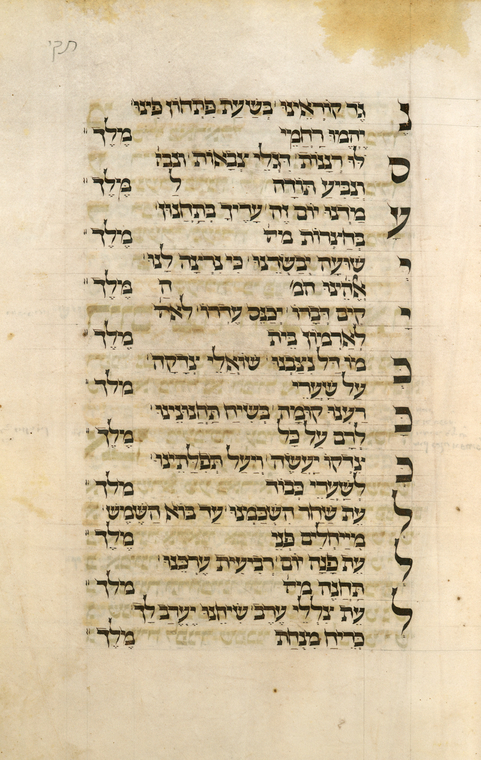 תקי
נ גר קוראינו בשעת פתחון פינו
יהמו רחמי מלך
ס רננות דגלי צבאות
תביע תורה ל מלך
ע מדנו יום זה בתחנון
בחצרות מלך
י שועה יבשרנו כי לנו
אלהינו המ' ה מלך
י קים דברו יכנס עדרו
לארמון בית מלך
כ מו דל נצבנו שואלי צדקה
על שערי מלך
כ רענו קומה בשיח תחנונינו
לרם על כל מלך
כ צדקו יעשה ויעל תפלתינו
לשערי כבוד מלך
ל עת שחר השכמנו עד בוא השמש
מייחלים פני מלך
ל עת פנה יום רביעית ערכנו
תחנה מלך
ל עת צללי ערב שיחנו יערב לך
כריח מנחת מלך